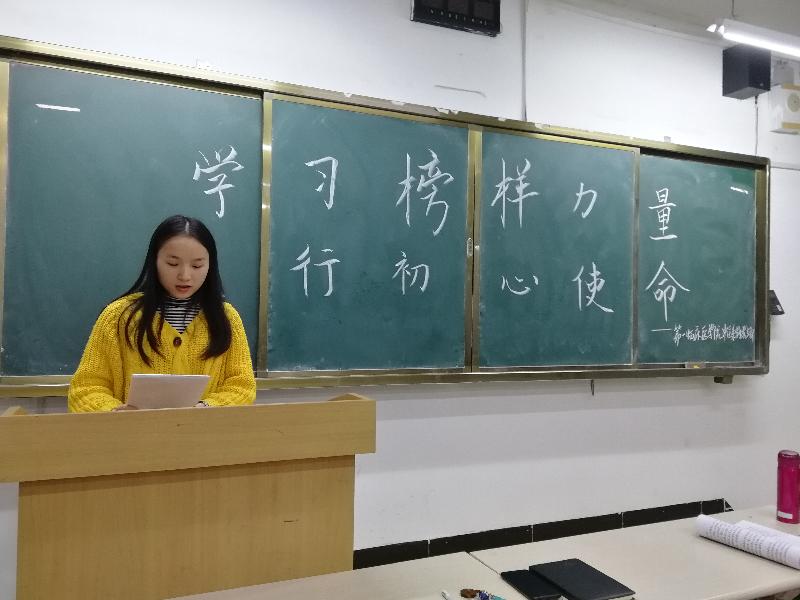 学习榜样力量
行初心使命
——第一临床医学院